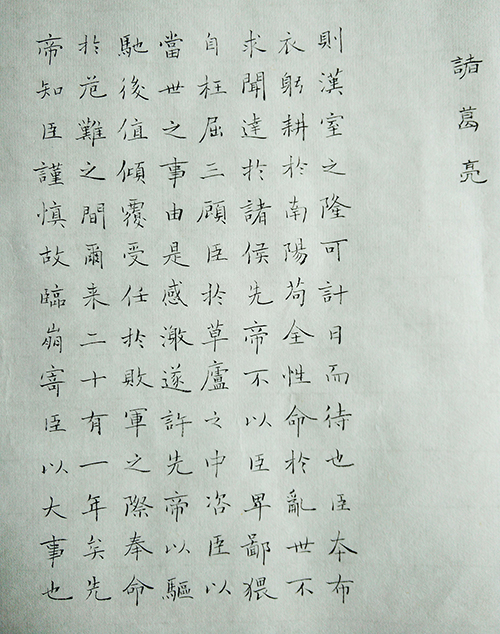 諸葛亮
則漢室之隆可計日而待也臣本布
衣躬耕於南陽苟全性命於亂世不
求聞達於諸侯先帝不以臣卑鄙猥
自枉屈三顧臣於草廬之中咨臣以
當世之事由是感激遂許先帝以驅
馳後值傾覆受任於敗軍之際奉命
於危難之間爾来二十有一年矣先
帝知臣謹慎故臨崩寄臣以大事也